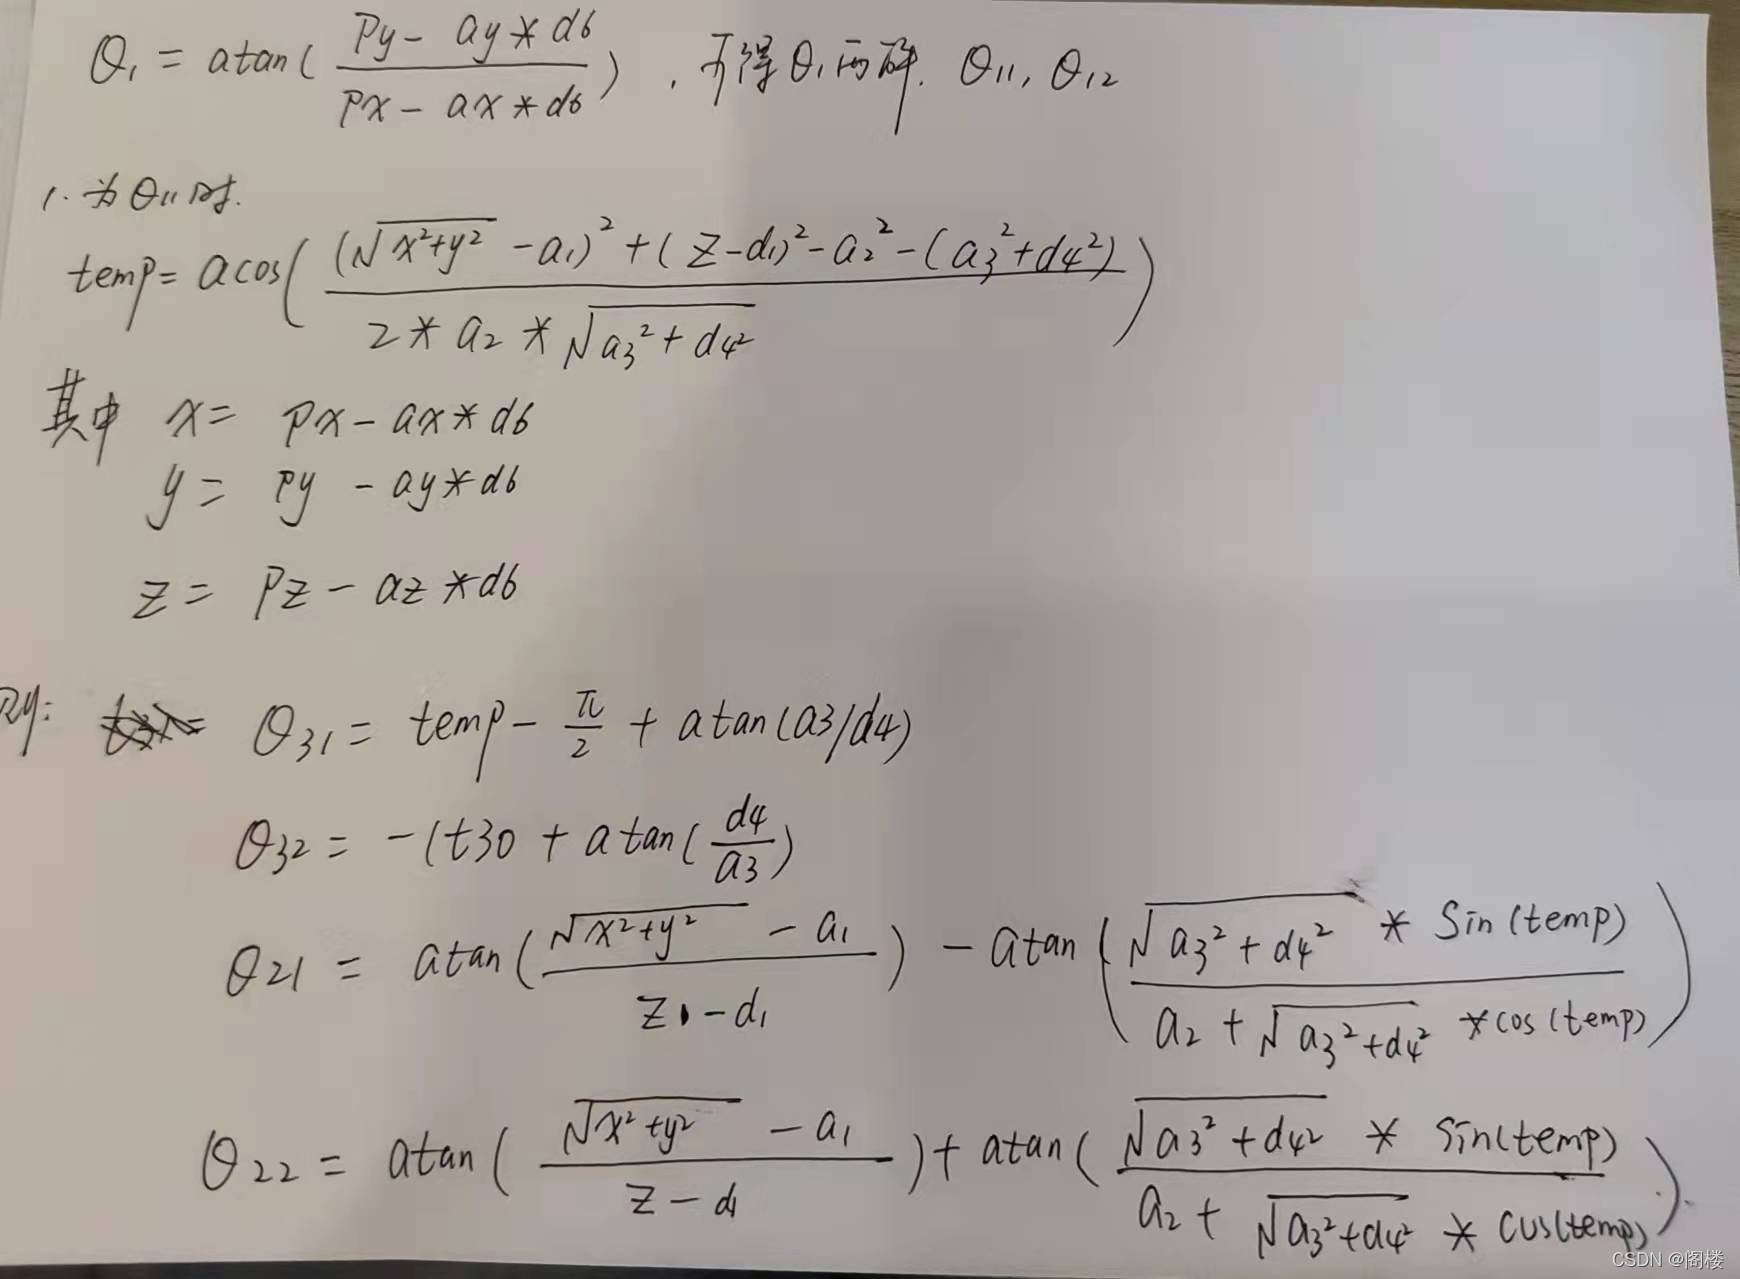 θ₁ = atan( (Py - ay * d6) / (Px - ax * d6) ) , 可得θ₁两解. θ11, θ12
1. 为θ11时.
temp = acos( ((√(x²+y²) - a₁)² + (z-d₁)² - a₂² - (a₃²+d4²)) / (2 * a₂ * √(a₃²+d4²)) )
其中 x = Px - ax * d6
y = Py - ay * d6
z = Pz - az * d6
则: θ31 = temp - π/2 + atan(a3/d4)
θ32 = -(t30 + atan(d4/a3)
θ21 = atan( (√(x²+y²) - a₁) / (z - d₁) ) - atan( (√(a₃²+d4²) * Sin(temp)) / (a₂ + √(a₃²+d4²) * cos(temp)) )
θ22 = atan( (√(x²+y²) - a₁) / (z - d₁) ) + atan( (√(a₃²+d4²) * Sin(temp)) / (a₂ + √(a₃²+d4²) * cos(temp)) ).
CSDN @阁楼